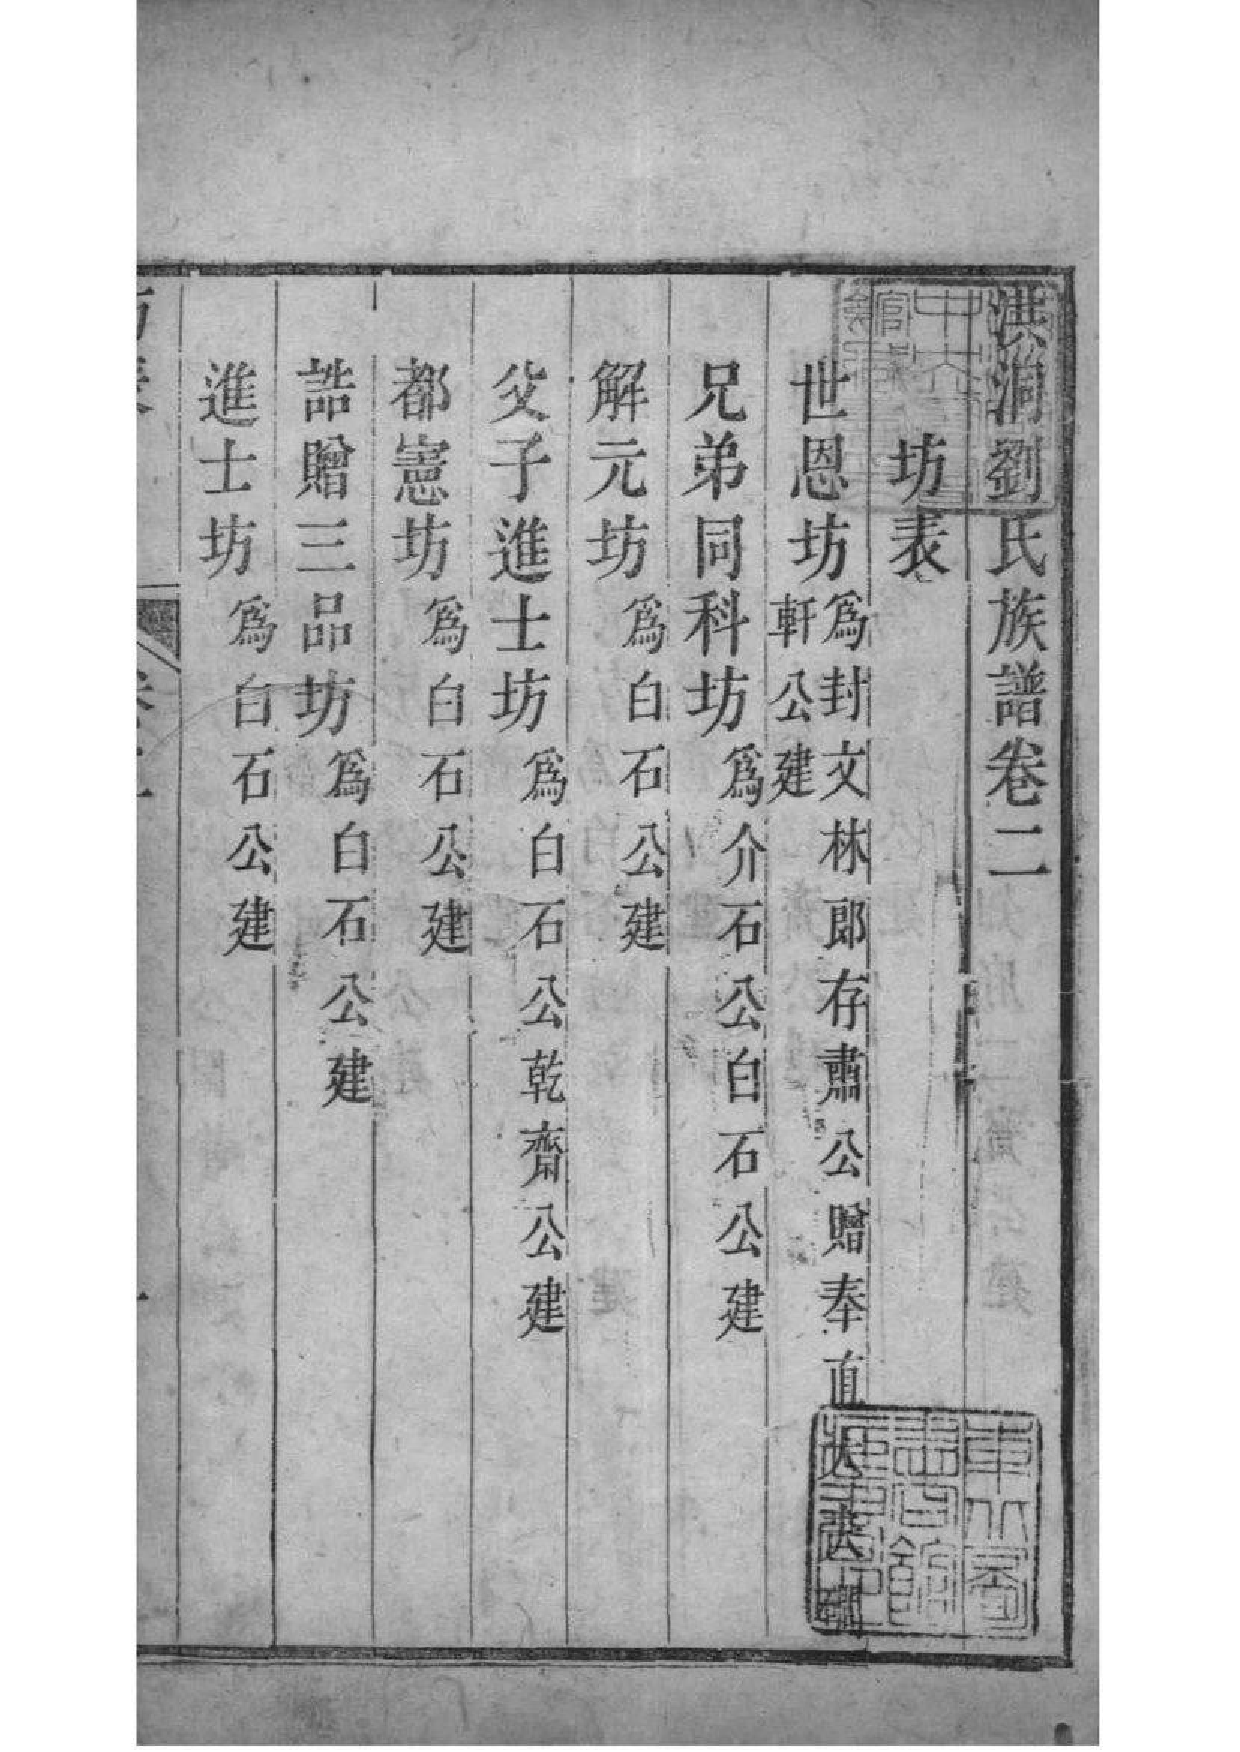 洪洞劉氏族譜卷二
坊表
世恩坊 爲封文林郎存肅公贈奉直大夫
軒公建
兄弟同科坊 爲介石公白石公建
解元坊 爲白石公建
父子進士坊 爲白石公乾齋公建
都憲坊 爲白石公建
誥贈三品坊 爲白石公建
進士坊 爲白石公建